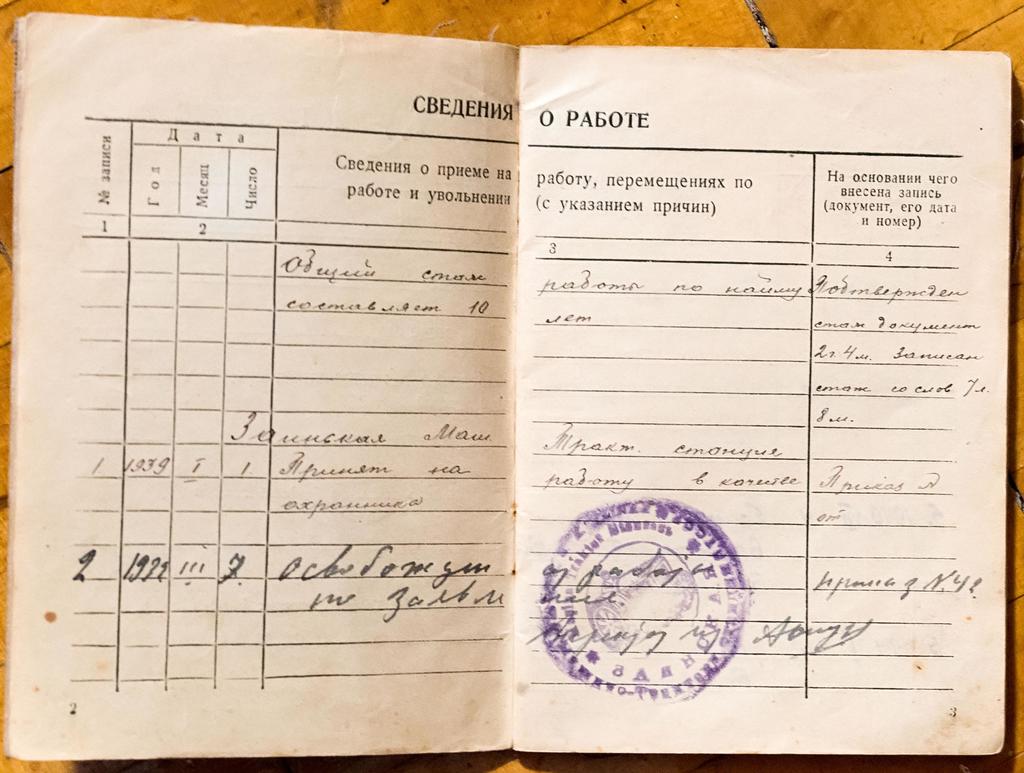 СВЕДЕНИЯ О РАБОТЕ
№ записи
Дата
Год
Месяц
Число
Сведения о приеме на работу, перемещениях по
работе и увольнении (с указанием причин)
На основании чего
внесена запись
(документ, его дата
и номер)
1
2
3
4
Общий стаж работы по найму
составляет 10 лет
Подтвержден
стаж документ
2 г. 4 м. Записан
стаж со слов 7 л.
8 м.
Заинская Маш. Тракт. станция
1 1939 I 1 Принят на работу в качестве
охранника
Приказ №
от
2 1939 III 7 Освобожден от работы
по заявл
приказ N. 42
2
3